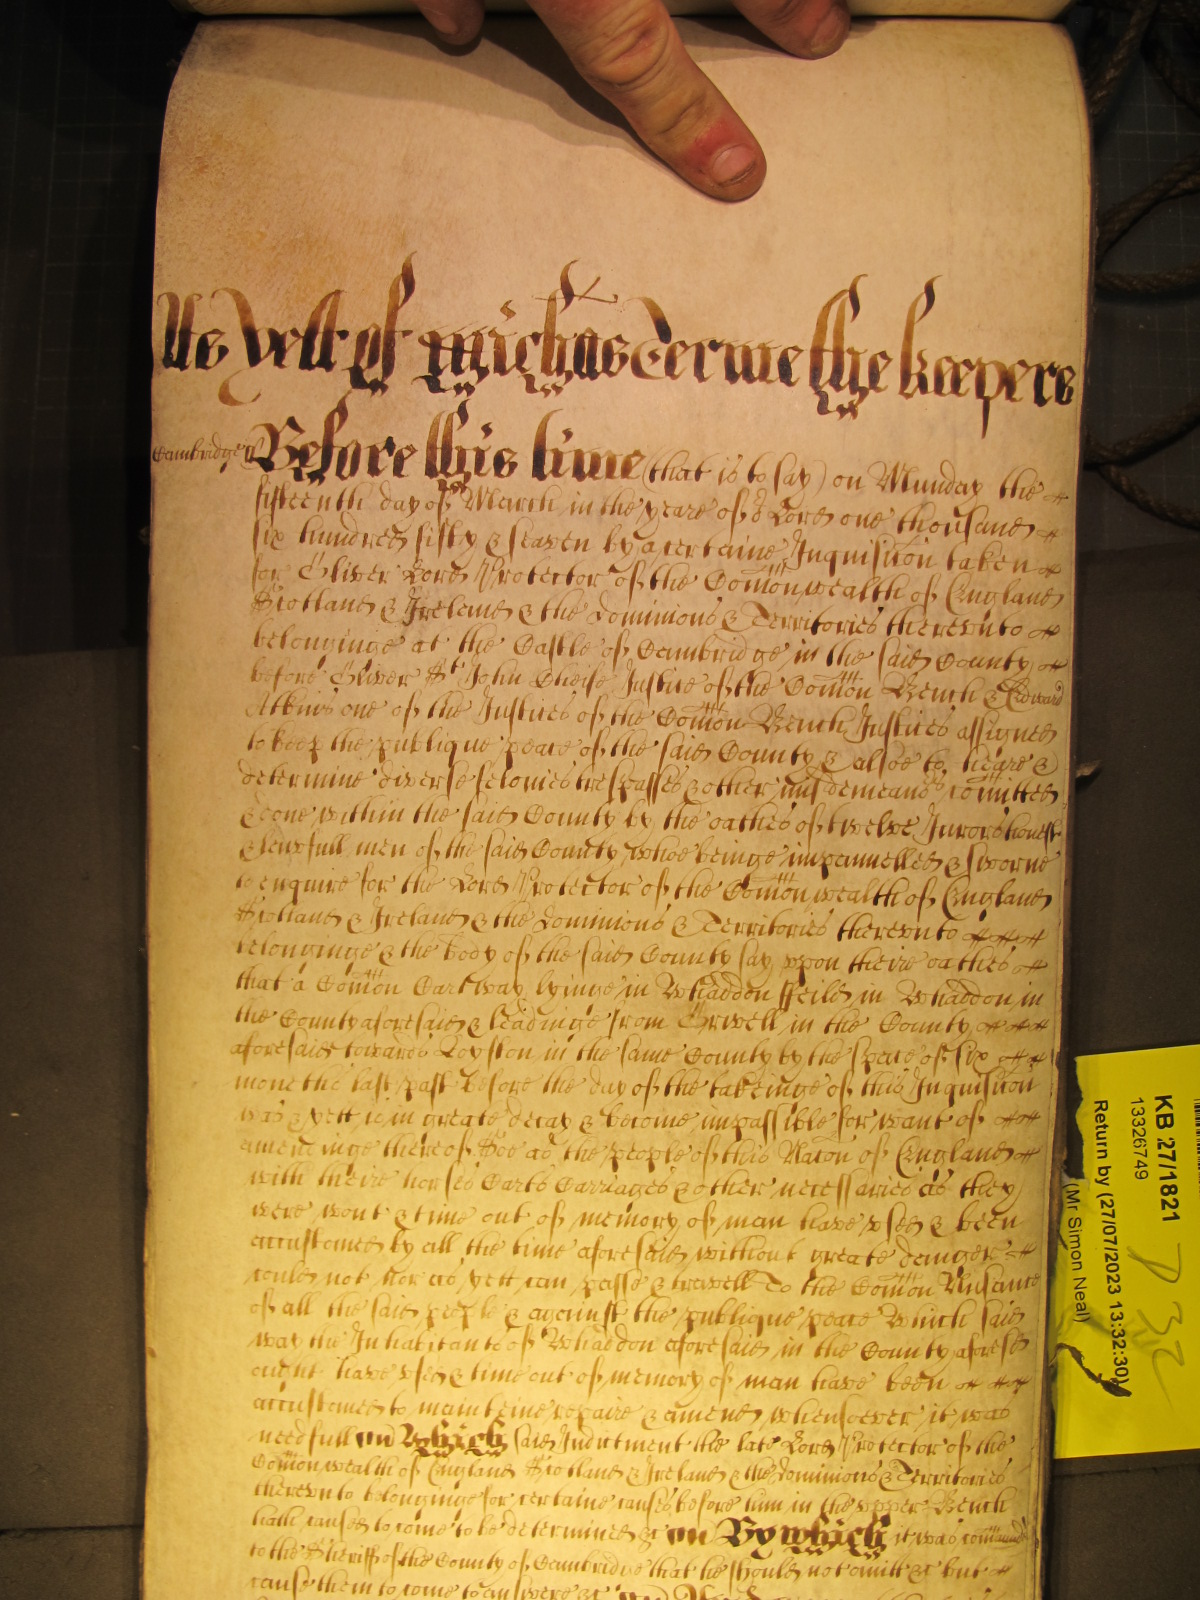 As Yett of Michas Terme the keepers
Cambridge
Before this time (that is to say) on Munday the
fifteenth day of March in the yeare of or Lord one thousand
six hundred fifty & seaven by a certaine Inquisicon taken
for Oliver Lord Protector of the Comonwealth of England
Scotland & Ireland & the Dominions & Territories therevnto
belonginge at the Castle of Cambridge in the said County
before Oliver St John Cheife Justice of the Comon Bench & Edward
Atkins one of the Justices of the Comon Bench Justices assigned
to keep the publique peace of the said County & alsoe to heare &
determine diverse felonies trespasses & other misdemeanors comitted
& done within the said County by the oathes of twelve Jurors honest
& lawfull men of the said County whoe beinge impannelled & sworne
to enquire for the Lord Protector of the Comonwealth of England
Scotland & Ireland & the Dominions & Territories therevnto
belonginge & the body of the said County say vpon theire oathes
that a Comon Cartway lyinge in Whaddon ffeild in Whaddon in
the County aforesaid & leadinge from Orwell in the County
aforesaid towards Royston in the same County by the space of six
moneths last past before the day of the takeinge of this Inquisicon
was & yett is in great decay & become impassible for want of
amendinge thereof Soe as the people of this Nacon of England
with theire horses Carts Carriages & other necessaries as they
were wont & time out of memory of man have vsed & been
accustomed by all the time aforesaid without great danger
could not nor as yett can passe & travell To the Comon Nusance
of all the said people & against the publique peace Which said
way the Inhabitants of Whaddon aforesaid in the County aforesd
ought have vsed & time out of memory of man have been
accustomed to mainteine repaire & amend whensoever it was
needfull on Which said Indictment the late Lord Protector of the
Comonwealth of England Scotland & Ireland & the Dominions & Territories
therevnto belonginge for certaine causes before him in the vpper Bench
hath caused to come to be determined &c on By which it was comanded
to the Sheriff of the County of Cambridge that he should not omitt &c but
cause them to come to answere &c
KB 27/1821
13326749
Return by (27/07/2023 13:32:30)
(Mr Simon Neal)